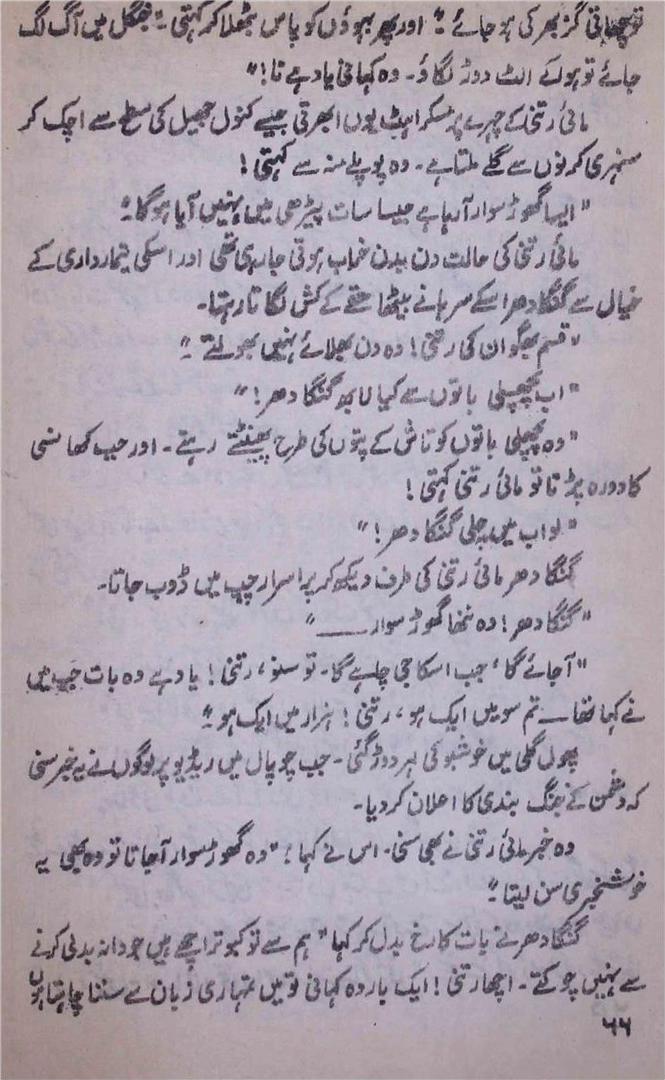 تو چھاتی گز بھر کی ہو جائے"۔ اور پھر بہوؤں کو پاس بٹھلا کر کہتی۔ "جنگل میں آگ لگ
جائے تو ہولے الٹ دوڑ لگاؤ۔ وہ کہانی یاد ہے نا!"
مائی رتنی کے چہرے پر مسکراہٹ یوں ابھرتی جیسے کنول جھیل کی سطح سے اچک کر
سنہری کرنوں سے گلے ملتا ہے۔ وہ پوپلے منہ سے کہتی!
"ایسا گھوڑ سوار آ رہا ہے جیسا سات پیڑھی میں نہیں آیا ہوگا"۔
مائی رتنی کی حالت دن بدن خراب ہوتی جا رہی تھی اور اسکی تیمارداری کے
خیال سے گنگا دھر اسکے سرہانے بیٹھا حقے کے کش لگاتا رہتا۔
"قسم بھگوان کی رتنی! وہ دن بھلائے نہیں بھولتے"۔
"اب پچھلی باتوں سے کیا لابھ گنگا دھر!"
"وہ پچھلی باتوں کو تاش کے پتوں کی طرح پھینٹتے رہتے۔ اور جب کھانسی
کا دورہ پڑتا تو مائی رتنی کہتی!
"لو اب میں چلی گنگا دھر!"
گنگا دھر مائی رتنی کی طرف دیکھ کر پراسرار چپ میں ڈوب جاتا۔
"گنگا دھر! وہ ننھا گھوڑ سوار ـــــ"
"آ جائے گا، جب اسکا جی چاہے گا۔ تو سنو، رتنی! یاد ہے وہ بات جب میں
نے کہا تھا۔ تم سو میں ایک ہو، رتنی! ہزار میں ایک ہو"۔
پھول گلی میں خوشبو کی لہر دوڑ گئی۔ جب چوپال میں ریڈیو پر لوگوں نے یہ خبر سنی
کہ دشمن نے جنگ بندی کا اعلان کر دیا۔
وہ خبر مائی رتنی نے بھی سنی۔ اس نے کہا! "وہ گھوڑ سوار آ جاتا تو وہ بھی یہ
خوشخبری سن لیتا"۔
گنگا دھر نے بات کا رخ بدل کر کہا "ہم سے تو کبوتر اچھے ہیں جو دانہ بدلی کرنے
سے نہیں چوکتے۔ اچھا رتنی! ایک بار وہ کہانی تو میں تمہاری زبان سے سننا چاہتا ہوں
۶۶